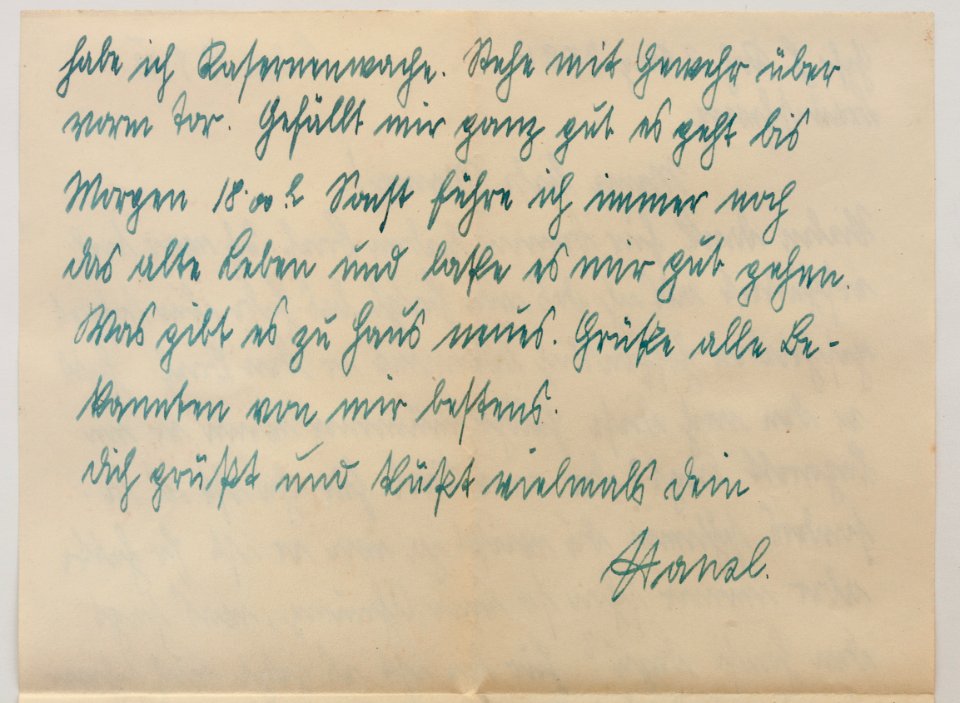 habe ich Kasernenwache. Stehe mit Gewehr über
vorm Tor. Gefällt mir ganz gut es geht bis
Morgen 18.00 h Sonst führe ich immer noch
das alte Leben und laße es mir gut gehen.
Was gibt es zu Haus neues. Grüße alle Be-
kannten von mir bestens.
Dich grüßt und küßt vielmals dein
Hansl.